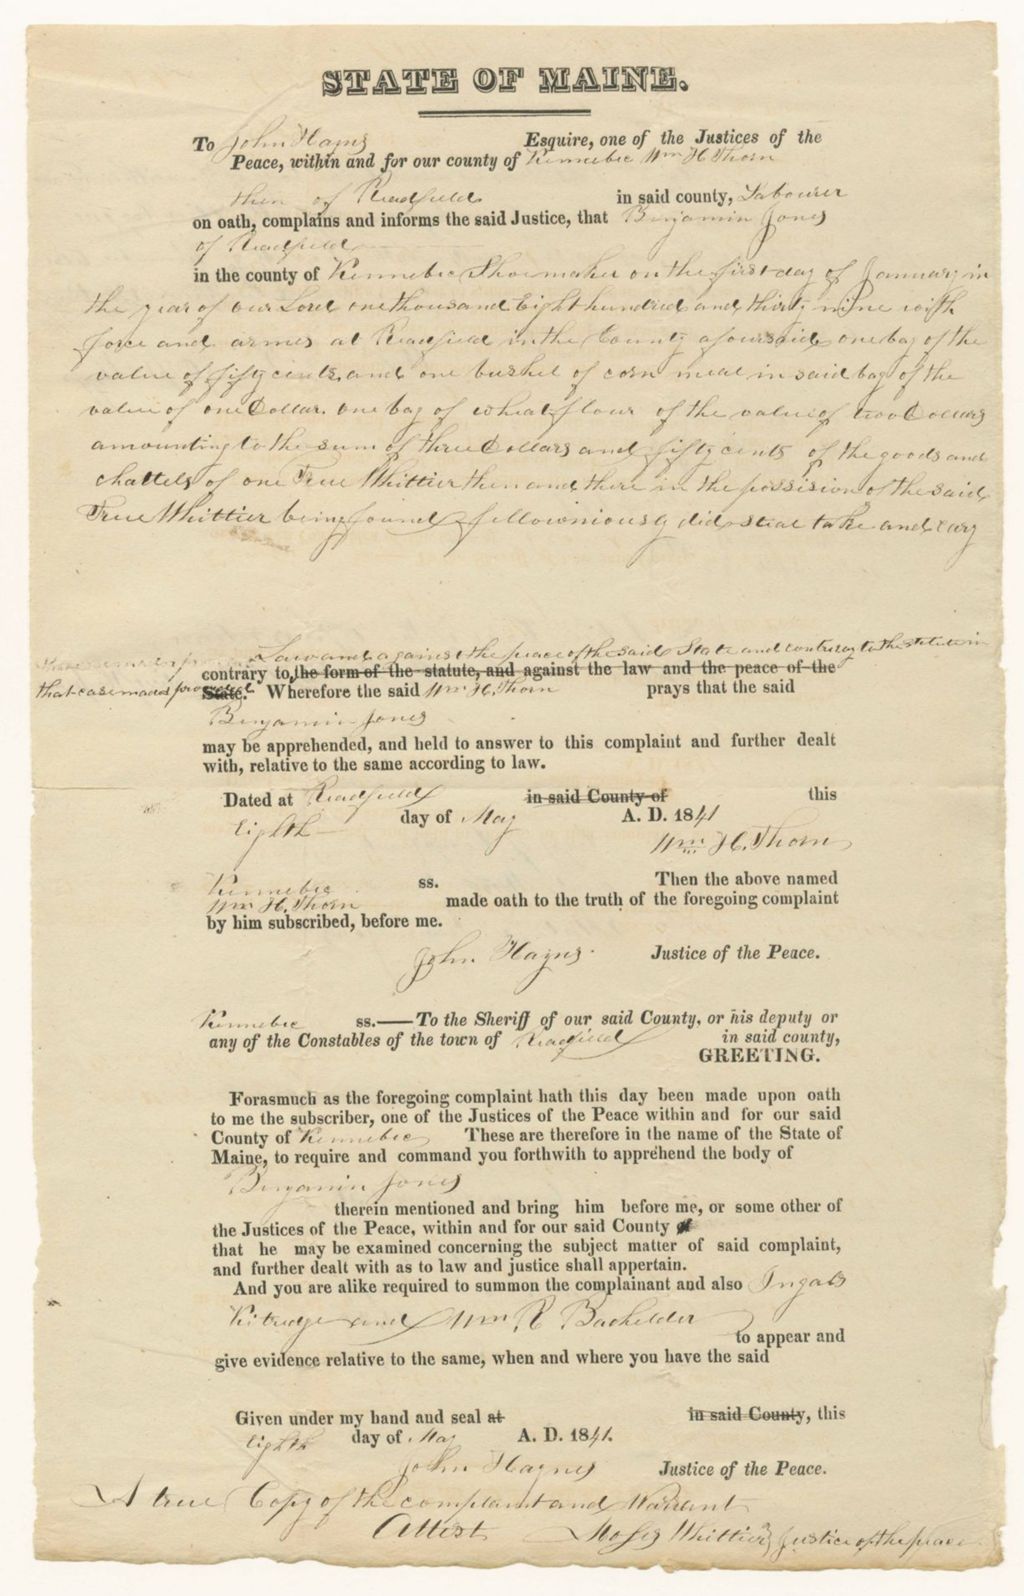 STATE OF MAINE.
To John Hayns Esquire, one of the Justices of the
Peace, within and for our county of Kennebec Wm H. Thorn
then of Readfield in said county, Labourer
on oath, complains and informs the said Justice, that Benjamin Jones
of Readfield
in the county of Kennebec Shoemaker on the first day of January in
the year of our Lord one thousand Eight hundred and thirty nine with
force and armes at Readfield in the County aforesaid one bag of the
value of fifty cents, and one bushel of corn meal in said bag of the
value of one Dollar. one bag of wheat flour of the value of two Dollars
amounting to the sum of three Dollars and fifty cents of the goods and
chattels of one True Whittier then and there in the possision of the said
True Whittier being found felloniously did steal take and cary
Law and against the peace of the said State and contrary to the statute in
contrary to the form of the statute, and against the law and the peace of the
that case made & provided
State. Wherefore the said Wm H. Thorn prays that the said
Benjamin Jones
may be apprehended, and held to answer to this complaint and further dealt
with, relative to the same according to law.
Dated at Readfield in said County of this
Eighth day of May A. D. 1841
Wm H. Thorn
Kennebec ss. Then the above named
Wm H. Thorn made oath to the truth of the foregoing complaint
by him subscribed, before me.
John Hayns. Justice of the Peace.
Kennebec ss.—To the Sheriff of our said County, or his deputy or
any of the Constables of the town of Readfield in said county,
GREETING.
Forasmuch as the foregoing complaint hath this day been made upon oath
to me the subscriber, one of the Justices of the Peace within and for our said
County of Kennebec These are therefore in the name of the State of
Maine, to require and command you forthwith to apprehend the body of
Benjamin Jones
therein mentioned and bring him before me, or some other of
the Justices of the Peace, within and for our said County
that he may be examined concerning the subject matter of said complaint,
and further dealt with as to law and justice shall appertain.
And you are alike required to summon the complainant and also Ingals
Kitredge and Wm R Bachelder
to appear and
give evidence relative to the same, when and where you have the said
Given under my hand and seal at in said County, this
Eighth day of May A. D. 1841.
John Haynes Justice of the Peace.
A true Copy of the complaint and Warrant
Attest Moses Whittier Justice of the peace